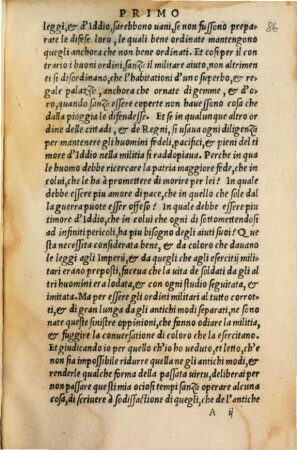 PRIMO
86
leggi, & d'Iddio, sarebbono uani, se non fussono prepa
rate le difese loro, le quali bene ordinate mantengono
quegli anchora che non bene ordinati. Et cosi per il con
trario i buoni ordini, sanzo il militare aiuto, non altrimen
ti si disordinano, che l'habitationi d'uno superbo, & re
gale palazzo, anchora che ornate di gemme, & d'o=
ro, quando sanzo essere coperte non hauessono cosa che
dalla pioggia le difendesse. Et se in qualunque altro or
dine delle cittadi, & de Regni, si usaua ogni diligenzo
per mantenere gli huomini fedeli, pacifici, & pieni del ti
more d'Iddio nella militia si raddopiaua. Perche in qua
le huomo debbe ricercare la patria maggiore fede, che in
colui, che le hà à promettere di morire per lei? In quale
debbe essere piu amore di pace, che in quello che solo dal
la guerra puote esser offeso? In quale debbe essere piu
timore d'Iddio, che in colui che ogni dì sottomettendosi
ad infiniti pericoli, ha piu bisogno degli aiuti suoi? Que
sta necessita considerata bene, & da coloro che dauano
le leggi agli Imperij, & da quegli che agli esercitij mili=
tari erano preposti, faceua che la uita de soldati da gli al
tri huomini era lodata, & con ogni studio seguitata, &
imitata. Ma per essere gli ordini militari al tutto corrot=
ti, & di gran lunga da gli antichi modi separati, ne sono
nate queste sinistre oppinioni, che fanno odiare la militia,
& fuggire la conuersatione di coloro che la esercitano.
Et giudicando io per quello ch'io ho ueduto, et letto, ch'e
non sia impossibile ridurre quella ne gli antichi modi, &
renderle qualche forma della passata uirtu, deliberai per
non passare questi mia ociosi tempi sanzo operare alcuna
cosa, di scriuere à sodisfattione di quegli, che de l'antiche
A ij